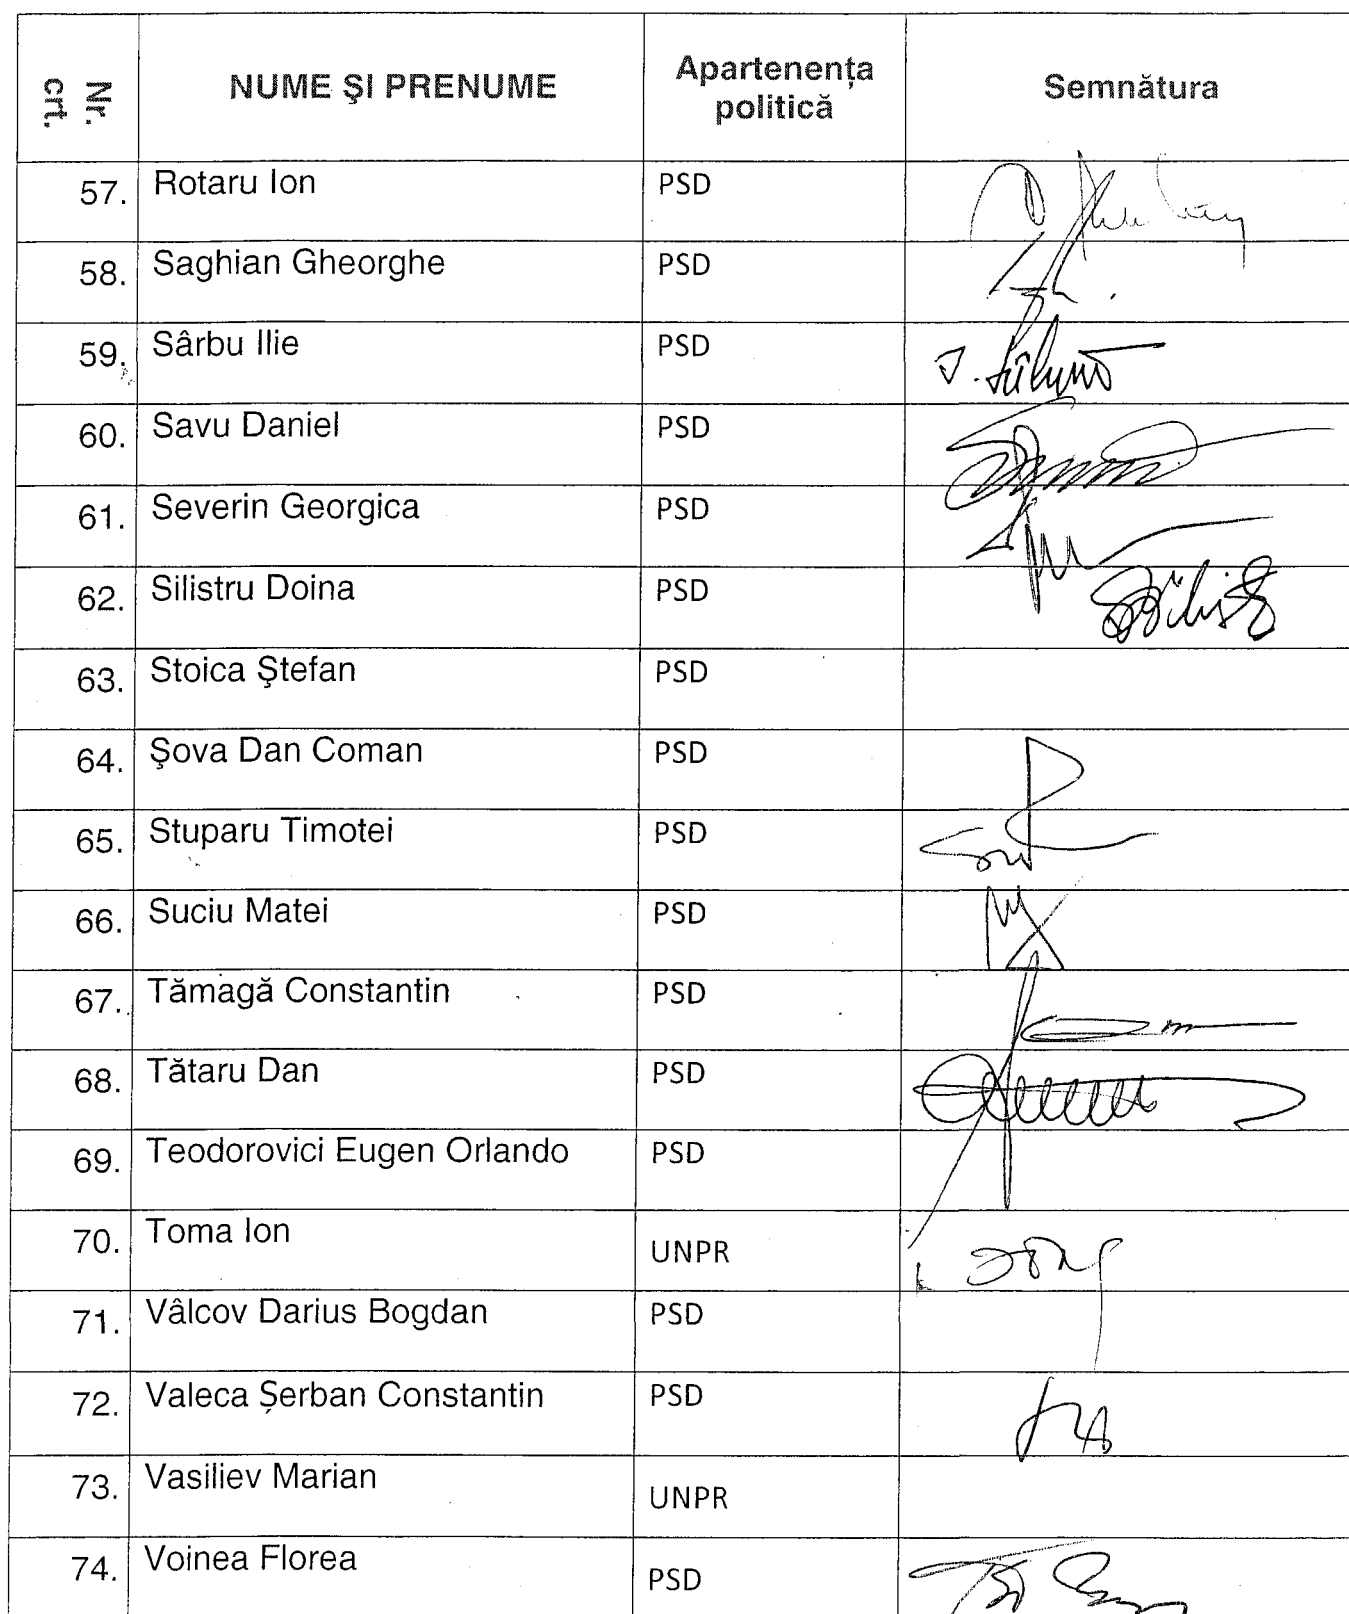 Nr. crt. NUME ŞI PRENUME Apartenența politică Semnătura
57. Rotaru Ion PSD
58. Saghian Gheorghe PSD
59. Sârbu Ilie PSD
60. Savu Daniel PSD
61. Severin Georgica PSD
62. Silistru Doina PSD
63. Stoica Ştefan PSD
64. Şova Dan Coman PSD
65. Stuparu Timotei PSD
66. Suciu Matei PSD
67. Tămagă Constantin PSD
68. Tătaru Dan PSD
69. Teodorovici Eugen Orlando PSD
70. Toma Ion UNPR
71. Vâlcov Darius Bogdan PSD
72. Valeca Șerban Constantin PSD
73. Vasiliev Marian UNPR
74. Voinea Florea PSD